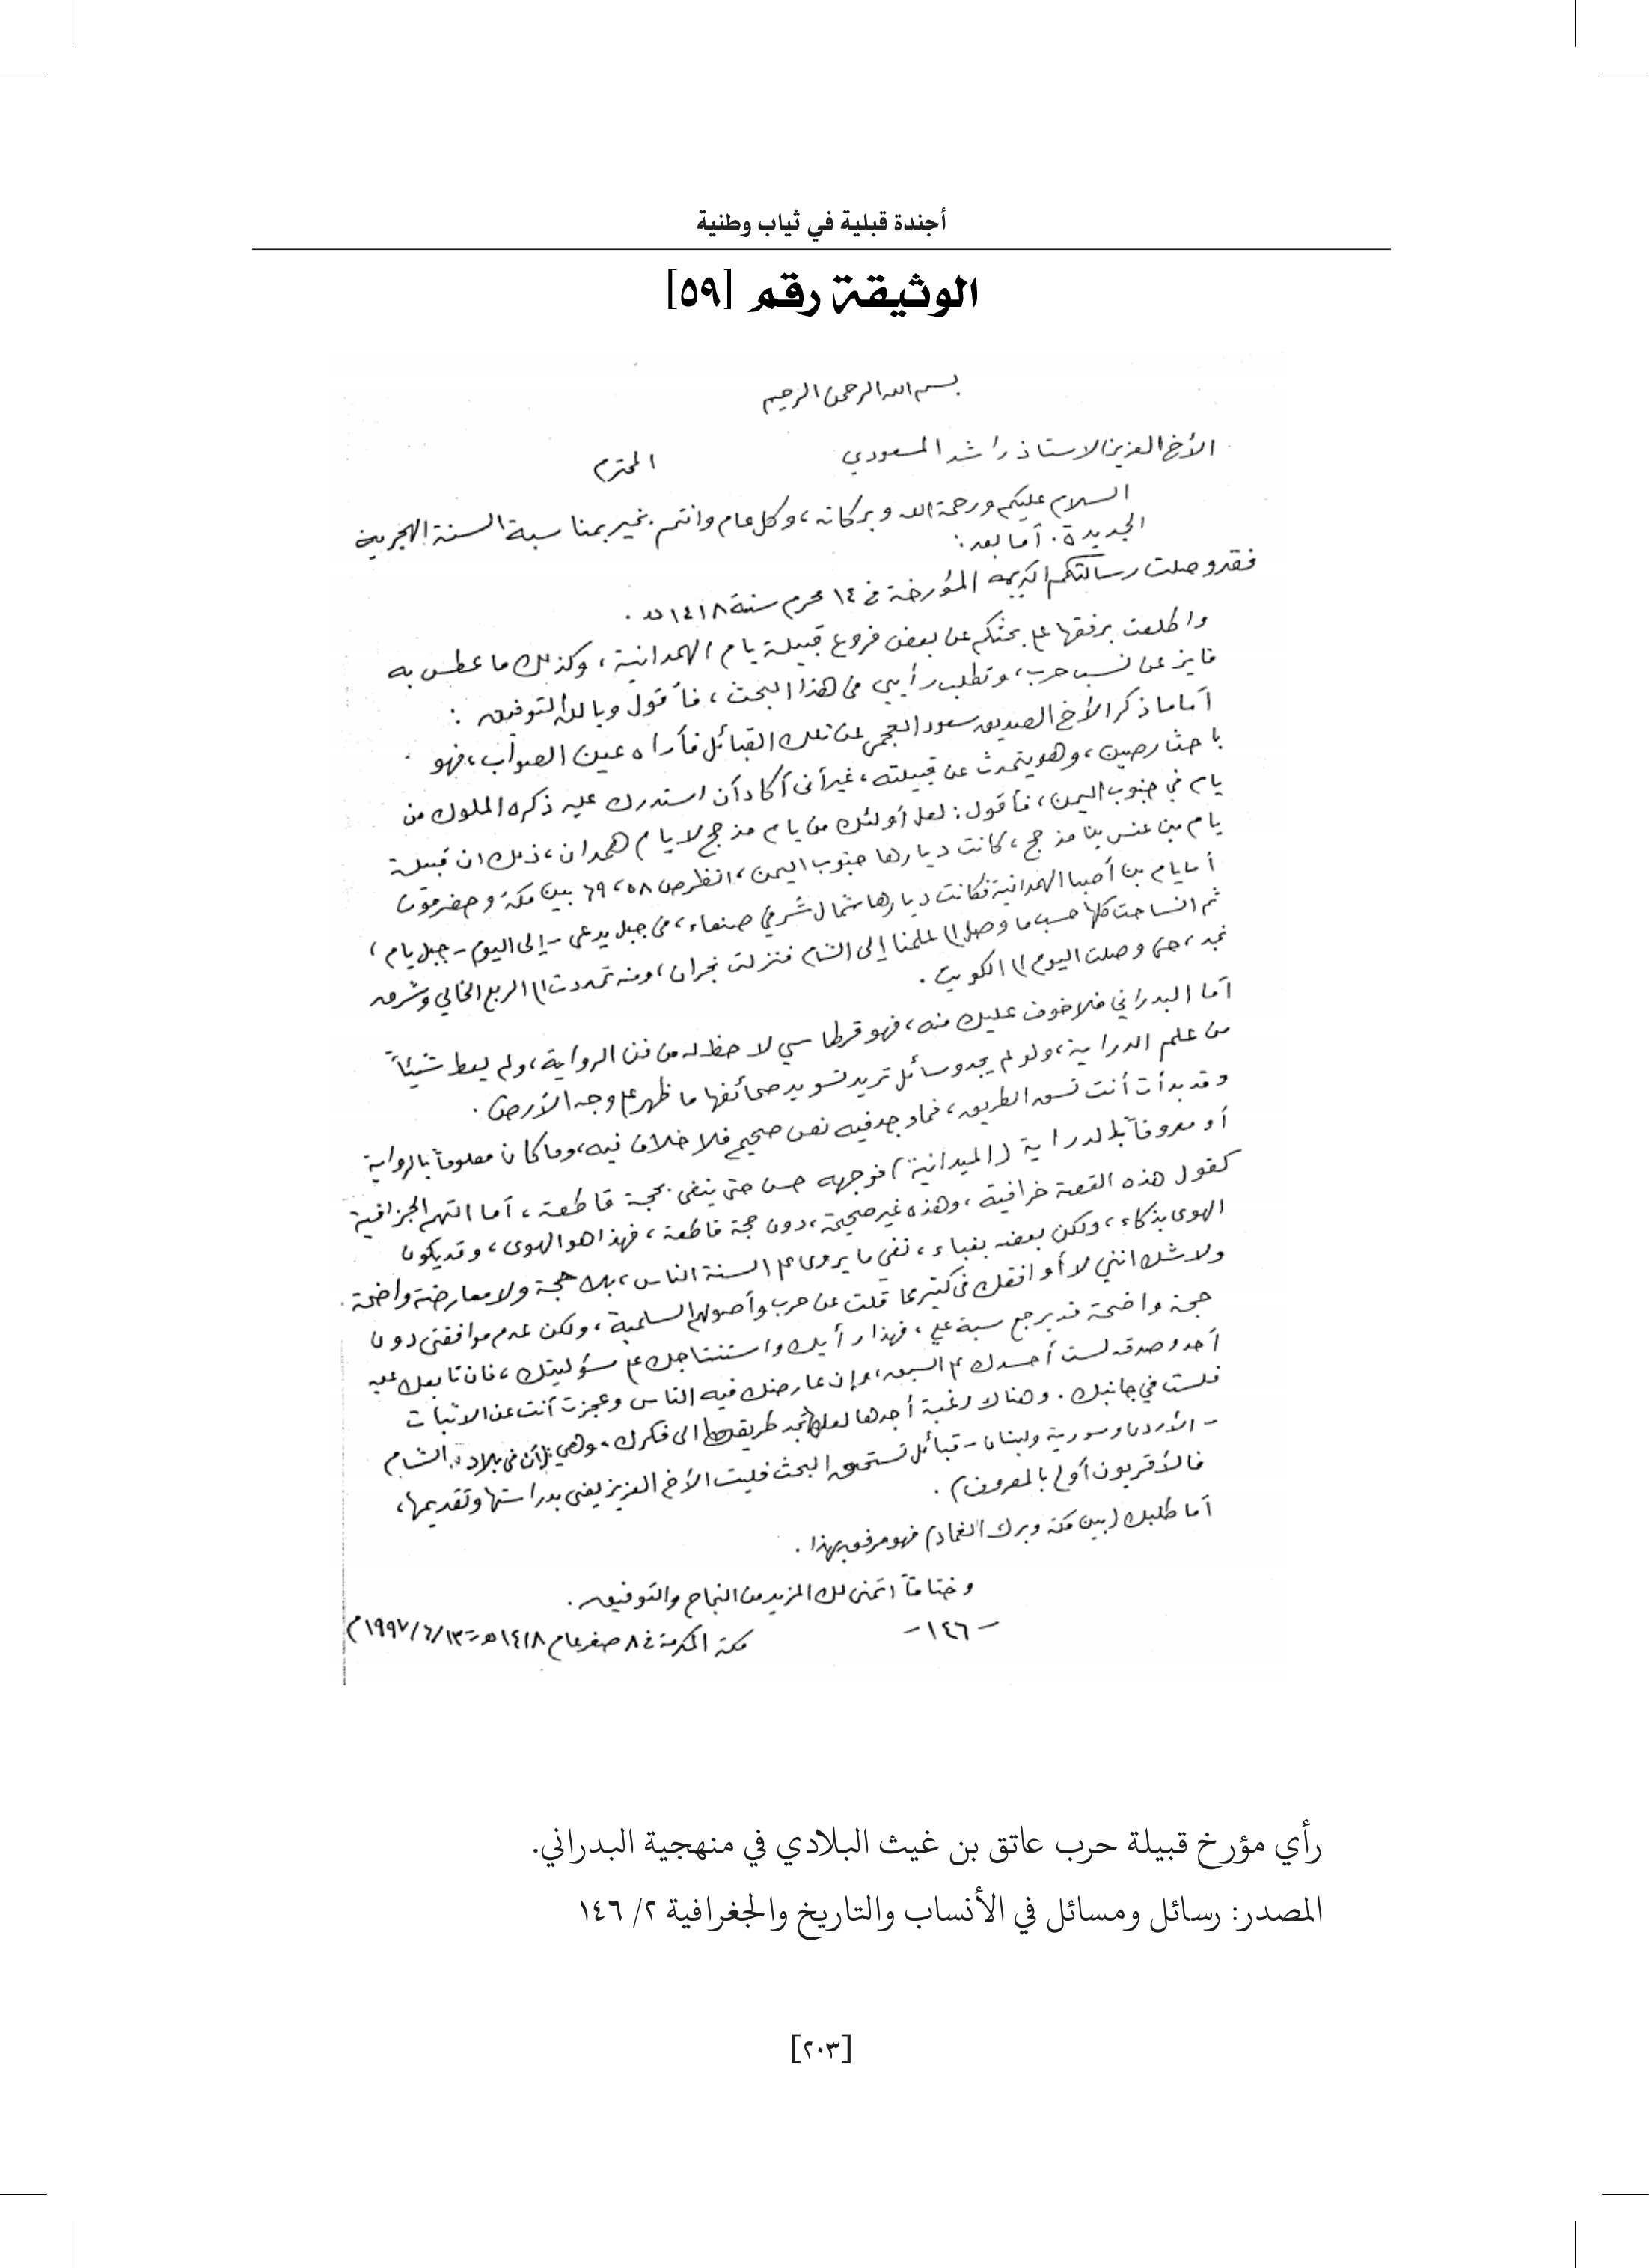 أجندة قبلية في ثياب وطنية
الوثيقة رقم [٥٩]
بسم الله الرحمن الرحيم
الأخ العزيز الاستاذ راشد المسعودي المحترم
السلام عليكم ورحمة الله وبركاته، وكل عام وانتم بخير بمناسبة السنة الهجرية
الجديدة. أما بعد:
فقد وصلت رسالتكم الكريمة المؤرخة في ١٤ محرم سنة ١٤١٨ هـ.
واطلعت برفقها على بحثكم عن بعض فروع قبيلة يام الهمدانية، وكذلك ما عطس به
فايز عن نسب حرب، وتطلب رأيي في هذا البحث، فأقول وبالله التوفيق:
أما ما ذكر الأخ الصديق سعود العجمي عن تلك القبائل فأراه عين الصواب، فهو
باحث رصين، وهو يتحدث عن قبيلته، غير أني أكاد أن استدرك عليه ذكره الملوك من
يام في جنوب اليمن، فأقول: لعل أولئك من يام مذحج لا يام همدان، ذلك ان قبيلة
يام بن عنس بن مذحج، كانت ديارها جنوب اليمن، انظر ص ٥٨، ٦٩ بين مكة وحضرموت
أما يام بن أصبا الهمدانية فكانت ديارها شمال شرقي صنعاء، في جبل يدعى - إلى اليوم - جبل يام،
ثم انساحت كلها حسب ما وصل الى علمنا إلى الشام فنزلت نجران، ومنه تمددت الى الربع الخالي وشرق
نجد، حتى وصلت اليوم الى الكويت.
أما البدراني فلا خوف عليك منه، فهو قرطاسي لا حظ له من فن الرواية، ولم يعط شيئاً
من علم الدراية، ولو لم يجد وسائل تريد تسويد صحائفها ما ظهر على وجه الأرض.
وقد بدأت أنت تسق الطريق، فما وجد فيه نص صحيح فلا خلاف فيه، وما كان معلوماً بالرواية
أو معروفاً بالدراية (الميدانية) فوجهه حسن حتى ينفى بحجة قاطعة، أما التهم الجزافية
كقول هذه القصة خرافية، وهذه غير صحيحة، دون حجة قاطعة، فهذا هو الهوى، وقد يكون
الهوى بذكاء، ولكن بعضه بغباء، نفي ما يروى على السنة الناس، بلا حجة ولا معارضة واضحة.
ولا شك انني لا أوافقك في كثير مما قلت عن حرب وأصولهم السلمية، ولكن عدم موافقتي دون
حجة واضحة قد يرجع سبة علي، فهذا رأيك واستنتاجك على مسؤليتك، فان تابعك عليه
أحد وصدقه لست أحسدك على السبق، وإن عارضك فيه الناس وعجزت أنت عن الاثبات
فلست في جانبك. وهناك رغبة أجدها لعلها تجد طريقها الى فكرك، وهي: أن في بلاد الشام
- الأردن وسورية ولبنان - قبائل تستحق البحث فليت الأخ العزيز يعنى بدراستها وتقديمها،
فالأقربون أولى بالمعروف).
أما طلبك (بين مكة وبرك الغماد) فهو مرفق بهذا.
وختاماً اتمنى لك المزيد من النجاح والتوفيق.
- ١٤٦ -
مكة المكرمة في ٨ صفر عام ١٤١٨ هـ = ١٣/ ٦/ ١٩٩٧م
رأي مؤرخ قبيلة حرب عاتق بن غيث البلادي في منهجية البدراني.
المصدر: رسائل ومسائل في الأنساب والتاريخ والجغرافية ٢/ ١٤٦
[٢٠٣]